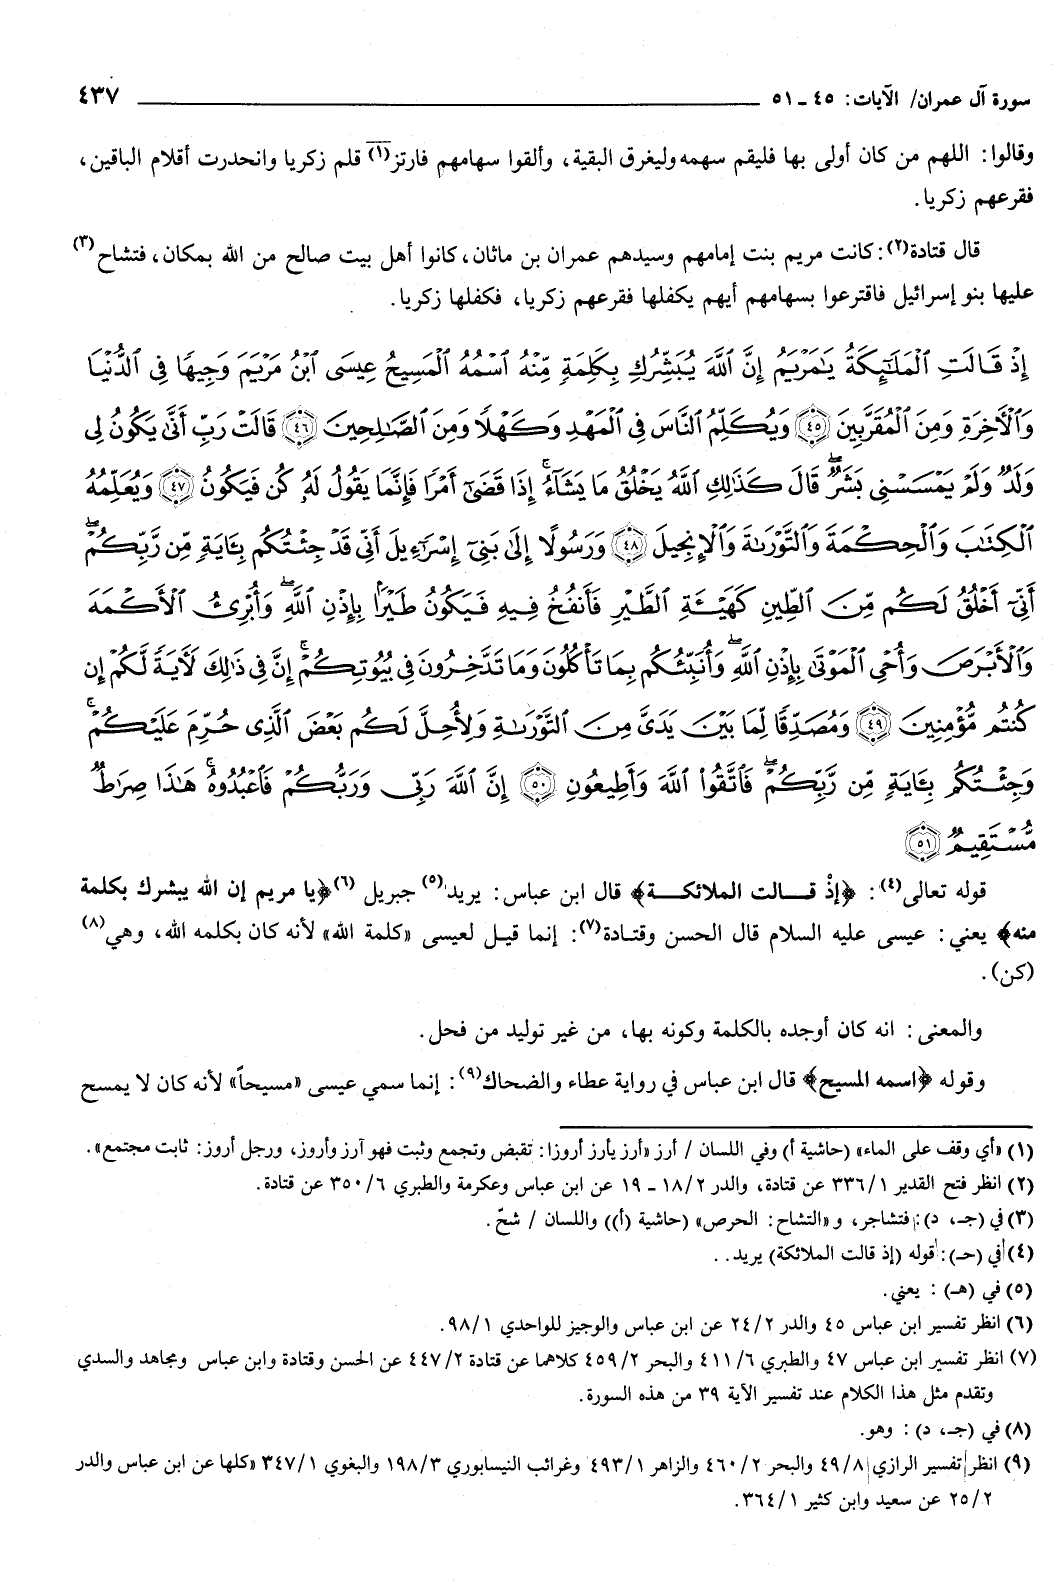 سورة آل عمران/ الآيات: ٤٥ ـ ٥١ ٤٣٧
وقالوا: اللهم من كان أولى بها فليقم سهمه وليغرق البقية، وألقوا سهامهم فارتز(١) قلم زكريا وانحدرت أقلام الباقين،
فقرعهم زكريا.
قال قتادة(٢): كانت مريم بنت إمامهم وسيدهم عمران بن ماثان، كانوا أهل بيت صالح من الله بمكان، فتشاح(٣)
عليها بنو إسرائيل فاقترعوا بسهامهم أيهم يكفلها فقرعهم زكريا، فكفلها زكريا.
إِذْ قَالَتِ ٱلْمَلَٰٓئِكَةُ يَٰمَرْيَمُ إِنَّ ٱللَّهَ يُبَشِّرُكِ بِكَلِمَةٍ مِّنْهُ ٱسْمُهُ ٱلْمَسِيحُ عِيسَى ٱبْنُ مَرْيَمَ وَجِيهًا فِي ٱلدُّنْيَا
وَٱلْأَخِرَةِ وَمِنَ ٱلْمُقَرَّبِينَ ٤٥ وَيُكَلِّمُ ٱلنَّاسَ فِي ٱلْمَهْدِ وَكَهْلًا وَمِنَ ٱلصَّٰلِحِينَ ٤٦ قَالَتْ رَبِّ أَنَّىٰ يَكُونُ لِي
وَلَدٌ وَلَمْ يَمْسَسْنِي بَشَرٌۖ قَالَ كَذَٰلِكِ ٱللَّهُ يَخْلُقُ مَا يَشَآءُۚ إِذَا قَضَىٰٓ أَمْرًا فَإِنَّمَا يَقُولُ لَهُۥ كُن فَيَكُونُ ٤٧ وَيُعَلِّمُهُ
ٱلْكِتَٰبَ وَٱلْحِكْمَةَ وَٱلتَّوْرَىٰةَ وَٱلْإِنجِيلَ ٤٨ وَرَسُولًا إِلَىٰ بَنِيٓ إِسْرَٰٓءِيلَ أَنِّي قَدْ جِئْتُكُم بِـَٔايَةٍ مِّن رَّبِّكُمْۖ
أَنِّيٓ أَخْلُقُ لَكُم مِّنَ ٱلطِّينِ كَهَيْـَٔةِ ٱلطَّيْرِ فَأَنفُخُ فِيهِ فَيَكُونُ طَيْرًۢا بِإِذْنِ ٱللَّهِۖ وَأُبْرِئُ ٱلْأَكْمَهَ
وَٱلْأَبْرَصَ وَأُحْيِ ٱلْمَوْتَىٰ بِإِذْنِ ٱللَّهِۖ وَأُنَبِّئُكُم بِمَا تَأْكُلُونَ وَمَا تَدَّخِرُونَ فِي بُيُوتِكُمْۚ إِنَّ فِي ذَٰلِكَ لَأٓيَةً لَّكُمْ إِن
كُنتُم مُّؤْمِنِينَ ٤٩ وَمُصَدِّقًا لِّمَا بَيْنَ يَدَيَّ مِنَ ٱلتَّوْرَىٰةِ وَلِأُحِلَّ لَكُم بَعْضَ ٱلَّذِي حُرِّمَ عَلَيْكُمْۚ
وَجِئْتُكُم بِـَٔايَةٍ مِّن رَّبِّكُمْۖ فَٱتَّقُوا۟ ٱللَّهَ وَأَطِيعُونِ ٥٠ إِنَّ ٱللَّهَ رَبِّي وَرَبُّكُمْ فَٱعْبُدُوهُۚ هَٰذَا صِرَٰطٌ
مُّسْتَقِيمٌ ٥١
قوله تعالى(٤): ﴿إذْ قالت الملائكة﴾ قال ابن عباس: يريد(٥) جبريل (٦)﴿يا مريم إن الله يبشرك بكلمة
منه﴾ يعني: عيسى عليه السلام قال الحسن وقتادة(٧): إنما قيل لعيسى «كلمة الله» لأنه كان بكلمه الله، وهي(٨)
(كن).
والمعنى: انه كان أوجده بالكلمة وكونه بها، من غير توليد من فحل.
وقوله ﴿اسمه المسيح﴾ قال ابن عباس في رواية عطاء والضحاك(٩): إنما سمي عيسى «مسيحاً» لأنه كان لا يمسح
(١) «أي وقف على الماء» (حاشية أ) وفي اللسان / أرز «أرز يأرز أروزا: تقبض وتجمع وثبت فهو آرز وأروز، ورجل أروز: ثابت مجتمع».
(٢) انظر فتح القدير ٣٣٦/١ عن قتادة، والدر ١٨/٢ ـ ١٩ عن ابن عباس وعكرمة والطبري ٣٥٠/٦ عن قتادة.
(٣) في (جـ، د): فتشاجر، و «التشاح: الحرص» (حاشية (أ)) واللسان / شحّ.
(٤) في (حـ): قوله (إذ قالت الملائكة) يريد. .
(٥) في (هـ) : يعني.
(٦) انظر تفسير ابن عباس ٤٥ والدر ٢٤/٢ عن ابن عباس والوجيز للواحدي ٩٨/١.
(٧) انظر تفسير ابن عباس ٤٧ والطبري ٤١١/٦ والبحر ٤٥٩/٢ كلاهما عن قتادة ٤٤٧/٢ عن الحسن وقتادة وابن عباس ومجاهد والسدي
وتقدم مثل هذا الكلام عند تفسير الآية ٣٩ من هذه السورة.
(٨) في (جـ، د) : وهو.
(٩) انظر تفسير الرازي ٤٩/٨ والبحر ٤٦٠/٢ والزاهر ٤٩٣/١ وغرائب النيسابوري ١٩٨/٣ والبغوي ٣٤٧/١ «كلها عن ابن عباس والدر
٢٥/٢ عن سعيد وابن كثير ٣٦٤/١.